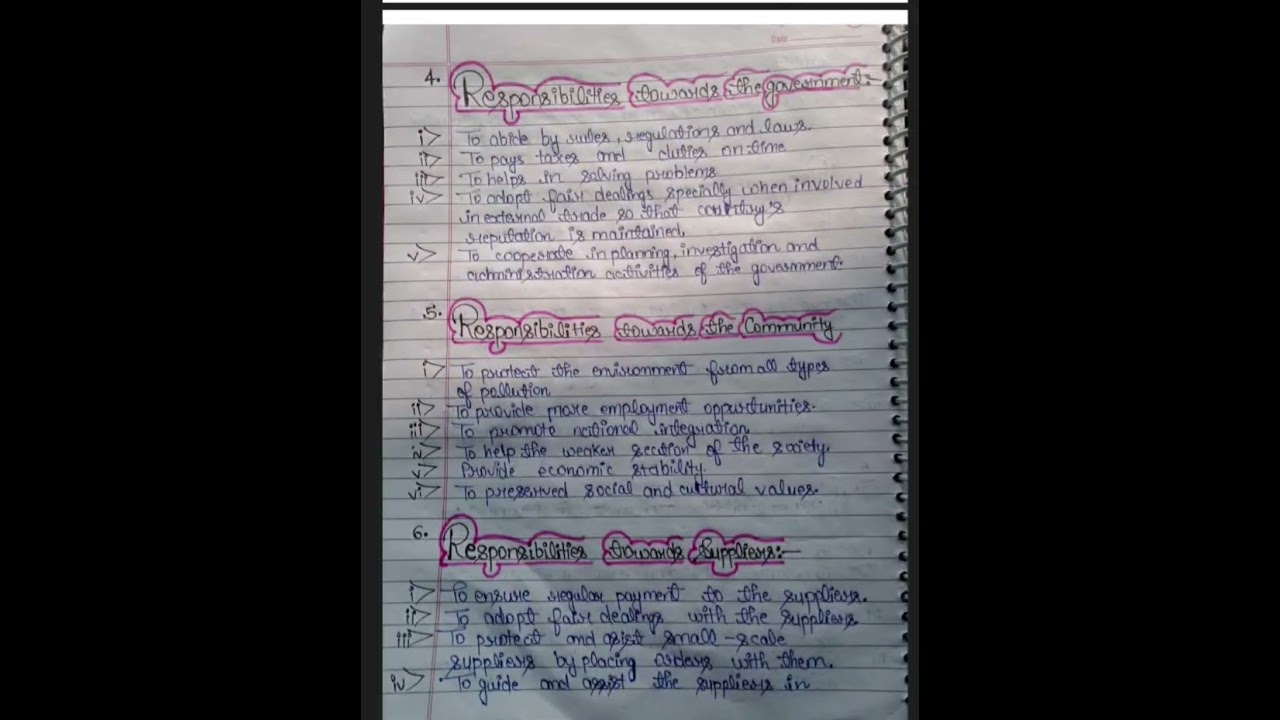 Date
4. Responsibilities towards the government:-
i> To abide by rules, regulations and laws.
ii> To pays taxes and duties on-time
iii> To helps in solving problems
iv> To adopt fair dealings specially when involved
in external trade so that country's
reputation is maintained.
v> To cooperate in planning, investigation and
administration activities of the government.
5. Responsibilities towards the Community
i> To protect the environment from all types
of pollution
ii> To provide more employment opportunities.
iii> To promote national integration
iv> To help the weaker section of the society.
v> Provide economic stability.
vi> To preserved social and cultural values.
6. Responsibilities towards Suppliers:-
i> To ensure regular payment to the suppliers.
ii> To adopt fair dealings with the suppliers
iii> To protect and asist small-scale
suppliers by placing orders with them.
iv> To guide and assist the suppliers in